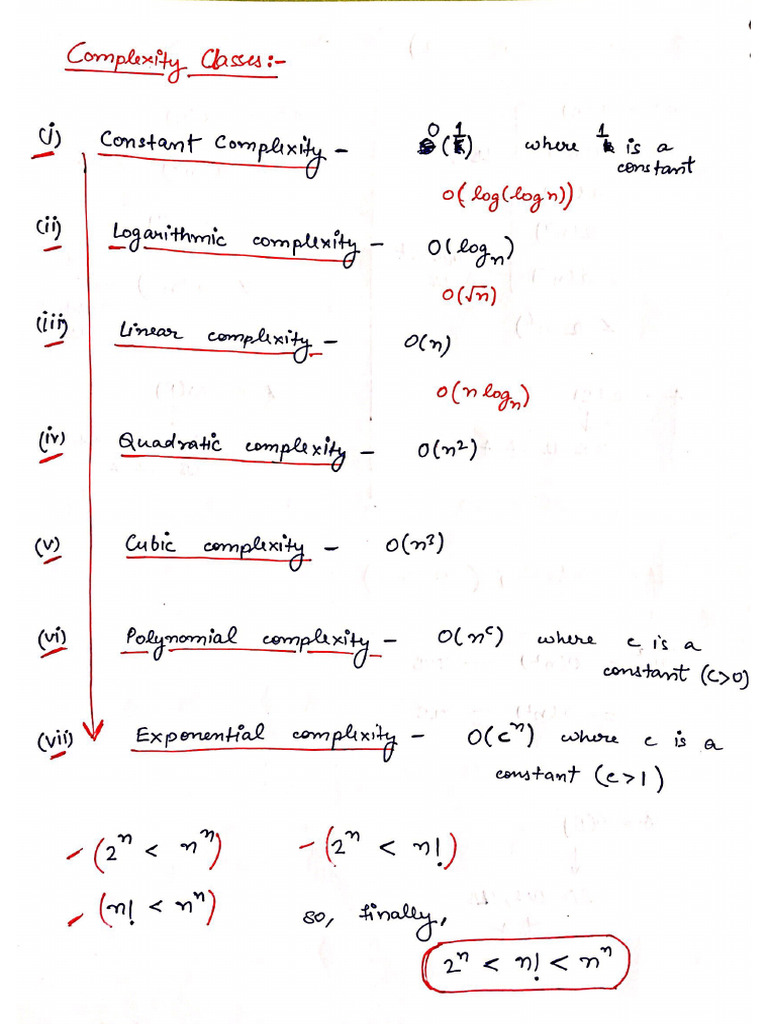 Complexity Classes:-
(i) Constant Complexity - O(1) where 1 is a
constant
O(log(log n))
(ii) Logarithmic complexity - O(log n)
O(√n)
(iii) Linear complexity - O(n)
O(n log n)
(iv) Quadratic complexity - O(n²)
(v) Cubic complexity - O(n³)
(vi) Polynomial complexity - O(nᶜ) where c is a
constant (c>0)
(vii) Exponential complexity - O(cⁿ) where c is a
constant (c>1)
- (2ⁿ < nⁿ) - (2ⁿ < n!)
- (n! < nⁿ) so, finally,
2ⁿ < n! < nⁿ